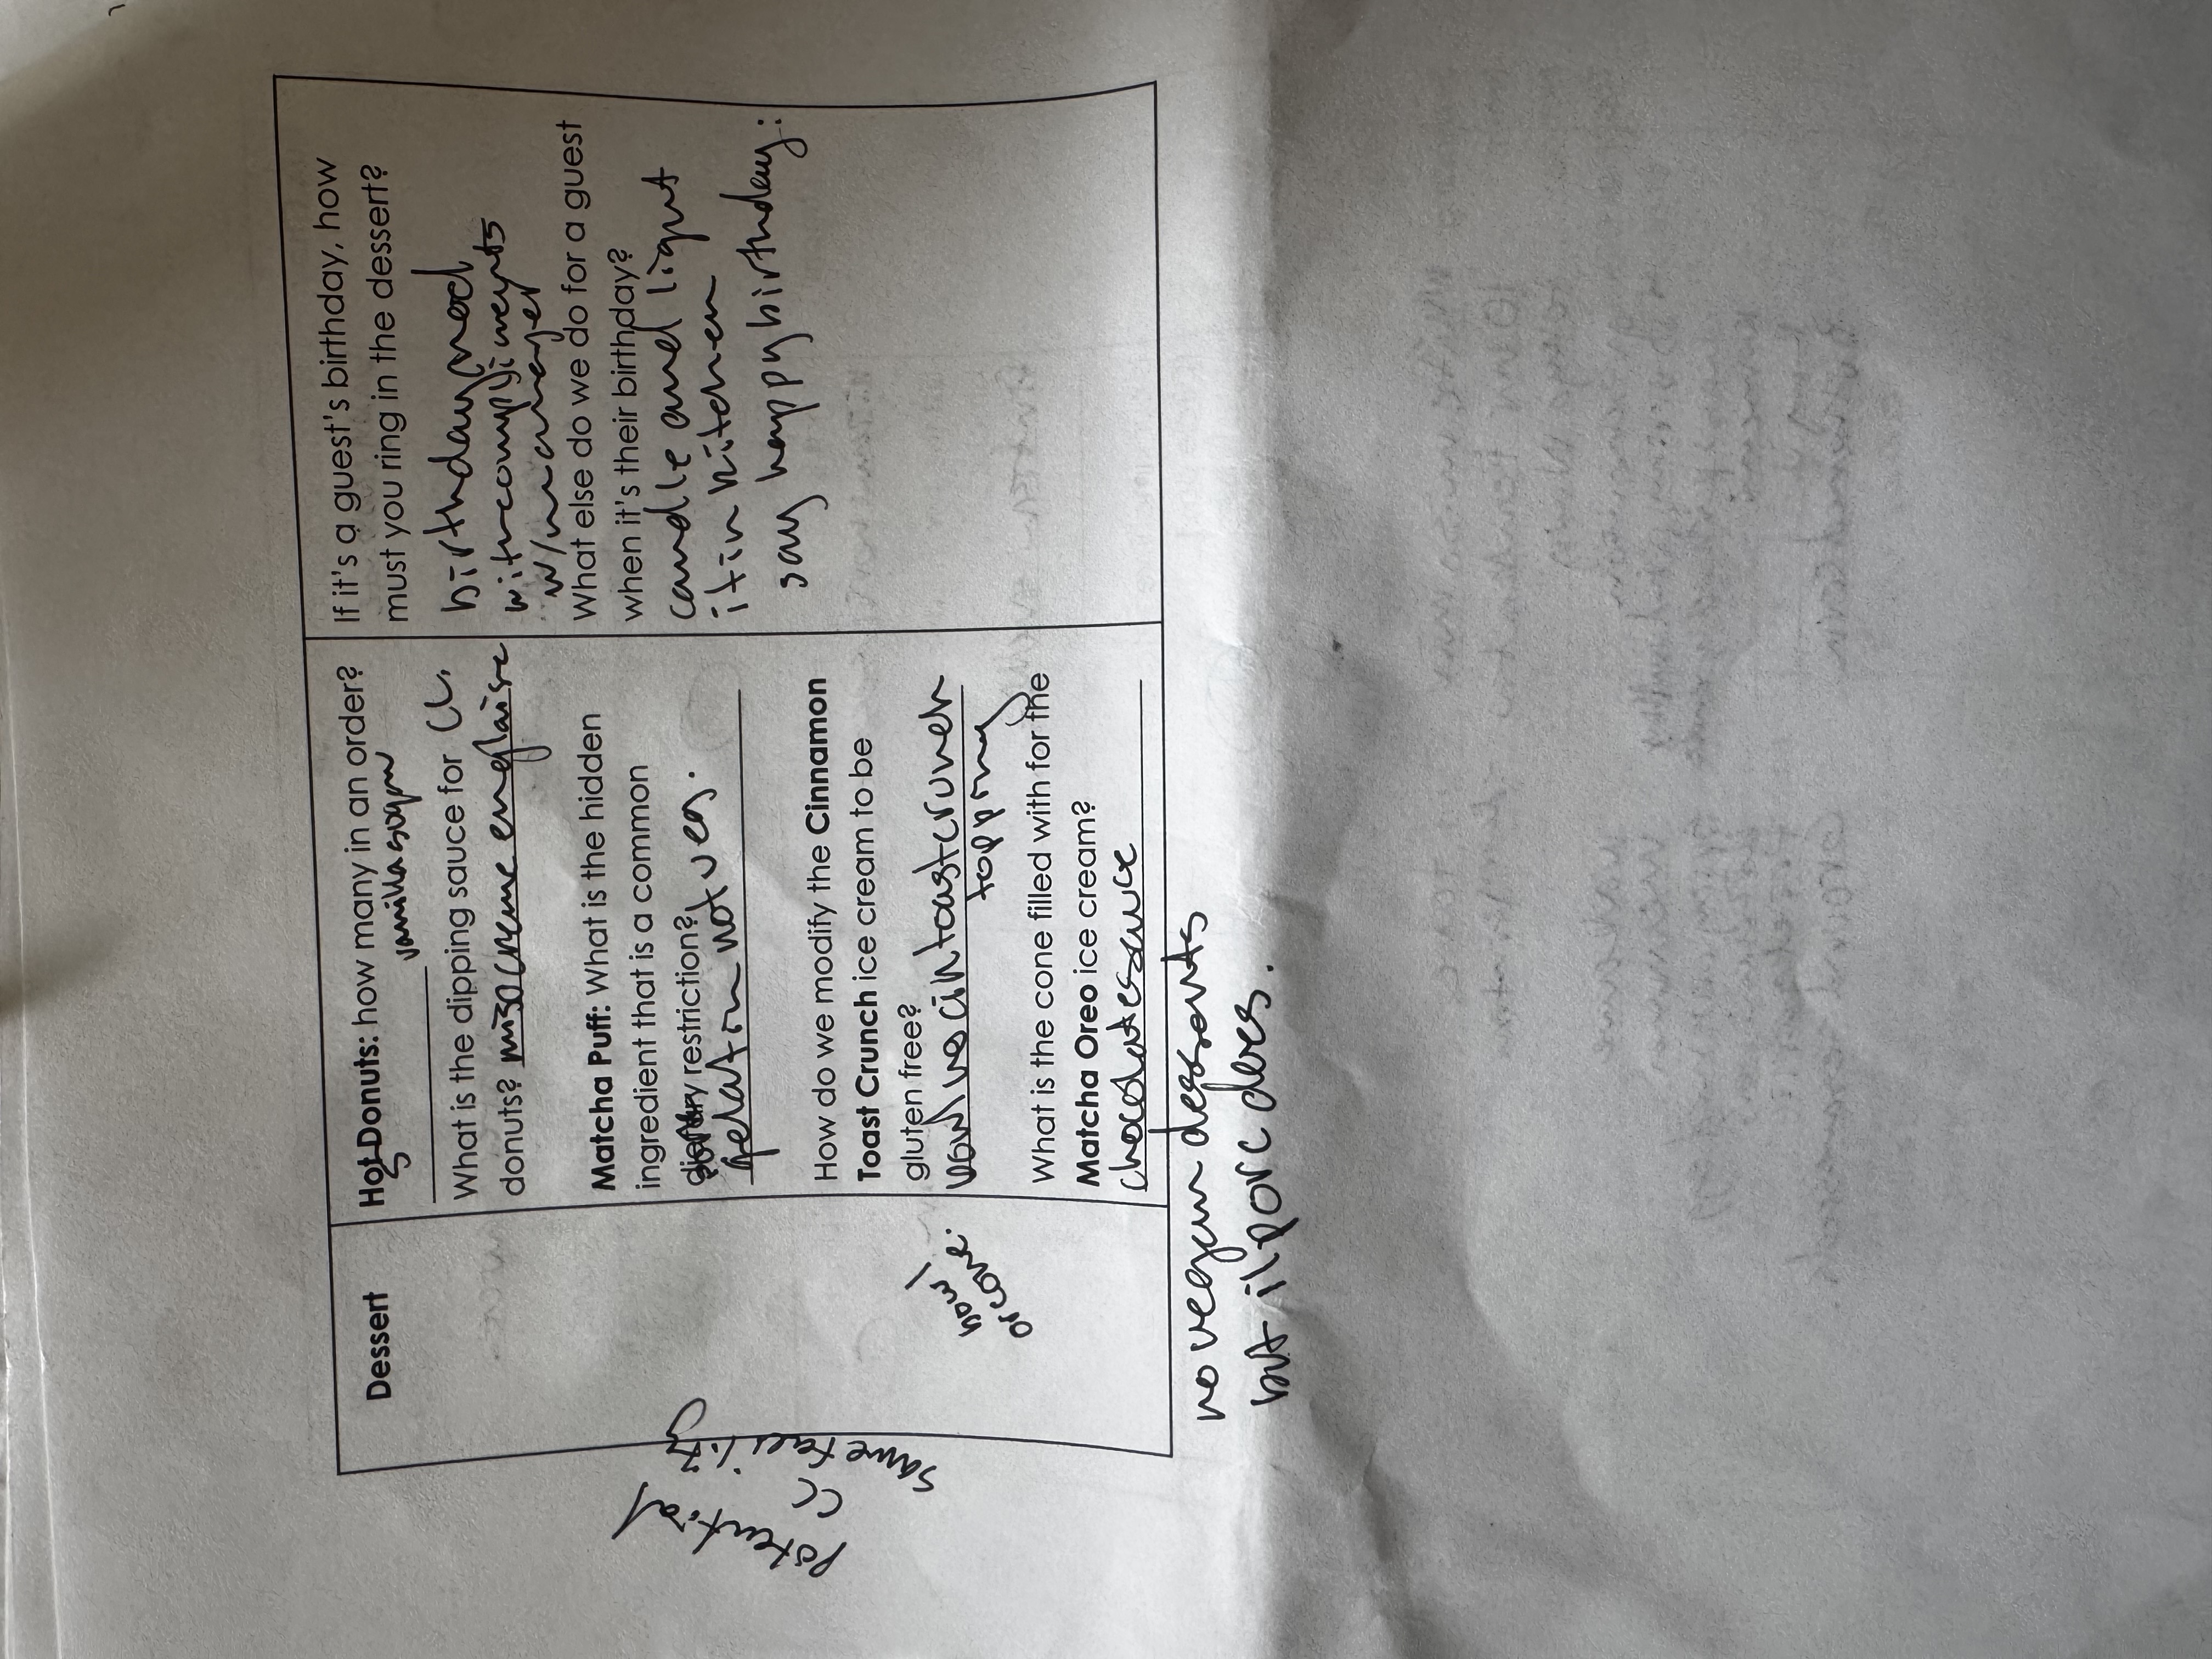 Dessert
bowl
or cone.
Potential
CC
same facility
Hot Donuts: how many in an order?
5
vanilla
What is the dipping sauce for
donuts? miso creme englaise
Matcha Puff: What is the hidden
ingredient that is a common
dietary restriction?
gelatin not veg.
How do we modify the Cinnamon
Toast Crunch ice cream to be
gluten free?
bowl no cin toast crunch
topping
What is the cone filled with for the
Matcha Oreo ice cream?
chocolate sauce
If it's a guest's birthday, how
must you ring in the dessert?
birthday mod
with compliments
w/ manager
What else do we do for a guest
when it's their birthday?
candle and light
it in kitchen
say happy birthday:
no vegan dessorts
but il porc does.